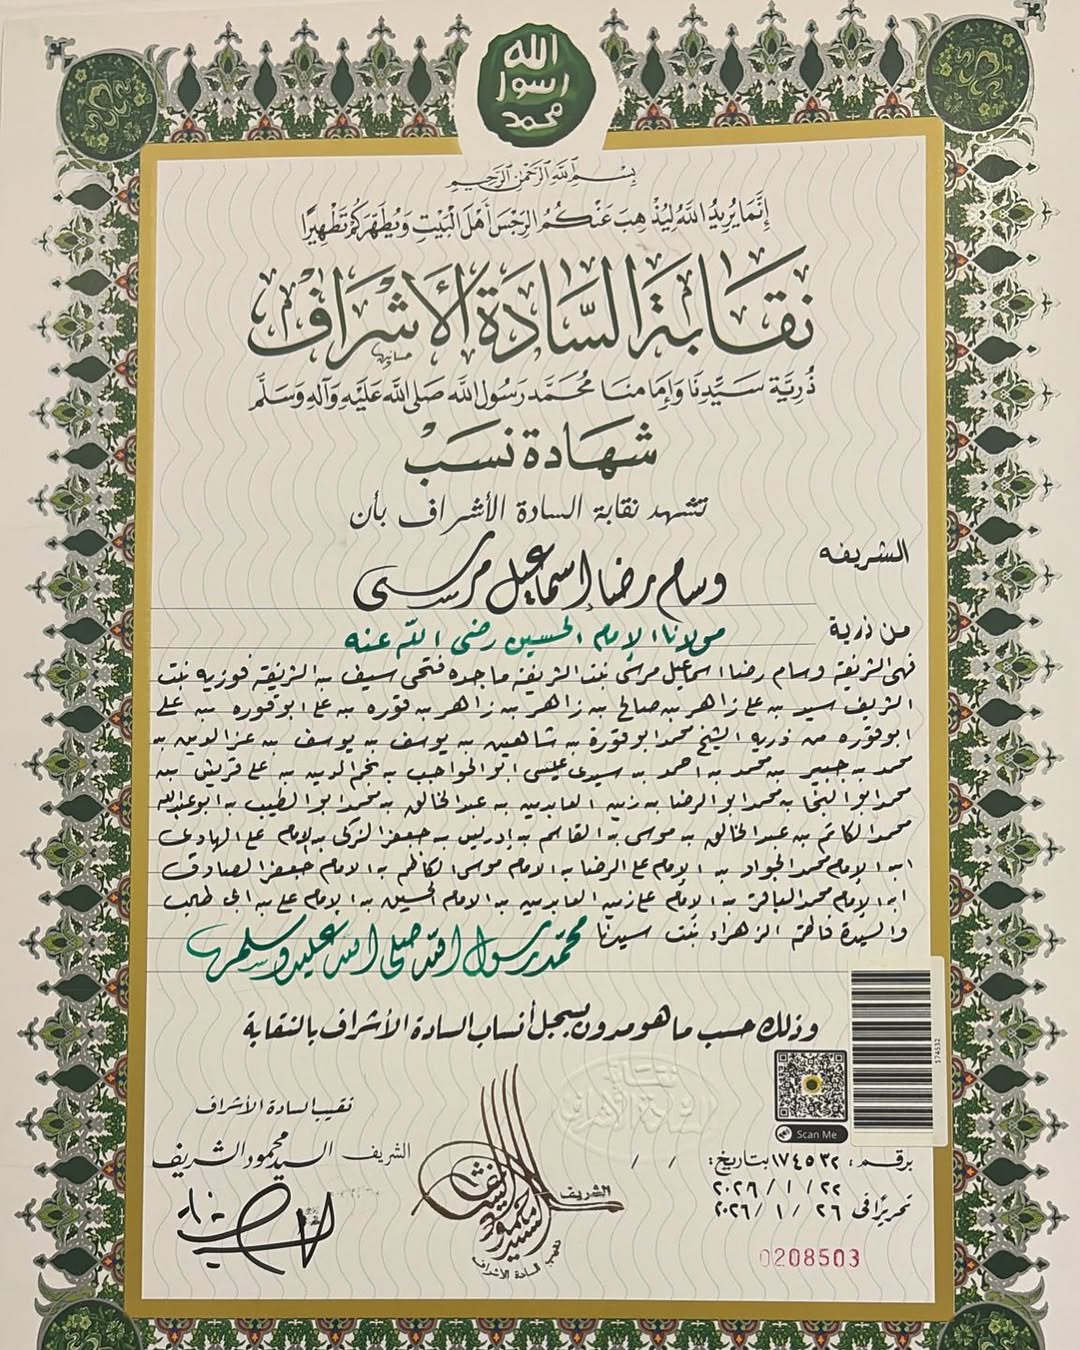 الله
رسول
محمد
بسم الله الرحمن الرحيم
إِنَّمَا يُرِيدُ اللَّهُ لِيُذْهِبَ عَنْكُمُ الرِّجْسَ أَهْلَ الْبَيْتِ وَيُطَهِّرَكُمْ تَطْهِيرًا
نقابة السادة الأشراف
ذرية سيدنا وإمامنا محمد رسول الله صلى الله عليه وآله وسلم
شهادة نسب
تشهد نقابة السادة الأشراف بأن
الشريفه
وسام رضا إسماعيل مرسى
من ذرية
مولانا الإمام الحسين رضى الله عنه
فهى الشريفة وسام رضا اسماعيل مرسى بنت الشريفة ماجده فتحى سيف بنت الشريفة فوزيه بنت
الشريف سيد بن على زاهر بن صالح بن زاهر بن زاهر بن قوره بن على ابو قوره بن على
ابوقوره من ذرية الشيخ محمد ابوقورة بن شاهين بن يوسف بن يوسف بن عز الدين بن
محمد بن جبير بن محمد بن احمد بن سيدى عيسى ابو الحواجب بن نجم الدين بن على قريش بن
محمد ابو النجا بن محمد ابو الرضا بن زين العابدين بن عبد الخالق بن محمد ابو الطيب بن ابو عبدالله
محمد الكاتم بن عبد الخالق بن موسى بن القاسم بن إدريس بن جعفر الزكى بن الإمام على الهادى
ابن الإمام محمد الجواد بن الإمام على الرضا بن الامام موسى الكاظم بن الامام جعفر الصادق
ابن الإمام محمد الباقر بن الإمام على زين العابدين بن الامام الحسين بن الإمام على بن ابى طالب
والسيدة فاطمة الزهراء بنت سيدنا محمد رسول الله صلى الله عليه وسلم
وذلك حسب ما هو مدون بسجل أنساب السادة الأشراف بالنقابة
174532
Scan Me
نقابة
السادة الأشراف
نقيب السادة الأشراف
الشريف السيد محمود الشريف
الشريف
السيد محمود
نقيب السادة الأشراف
برقم: ١٧٤٥٣٢ بتاريخ: / /
٢٢ / ١ / ٢٠٢٦
تحريرًا فى ٢٦ / ١ / ٢٠٢٦
0208503